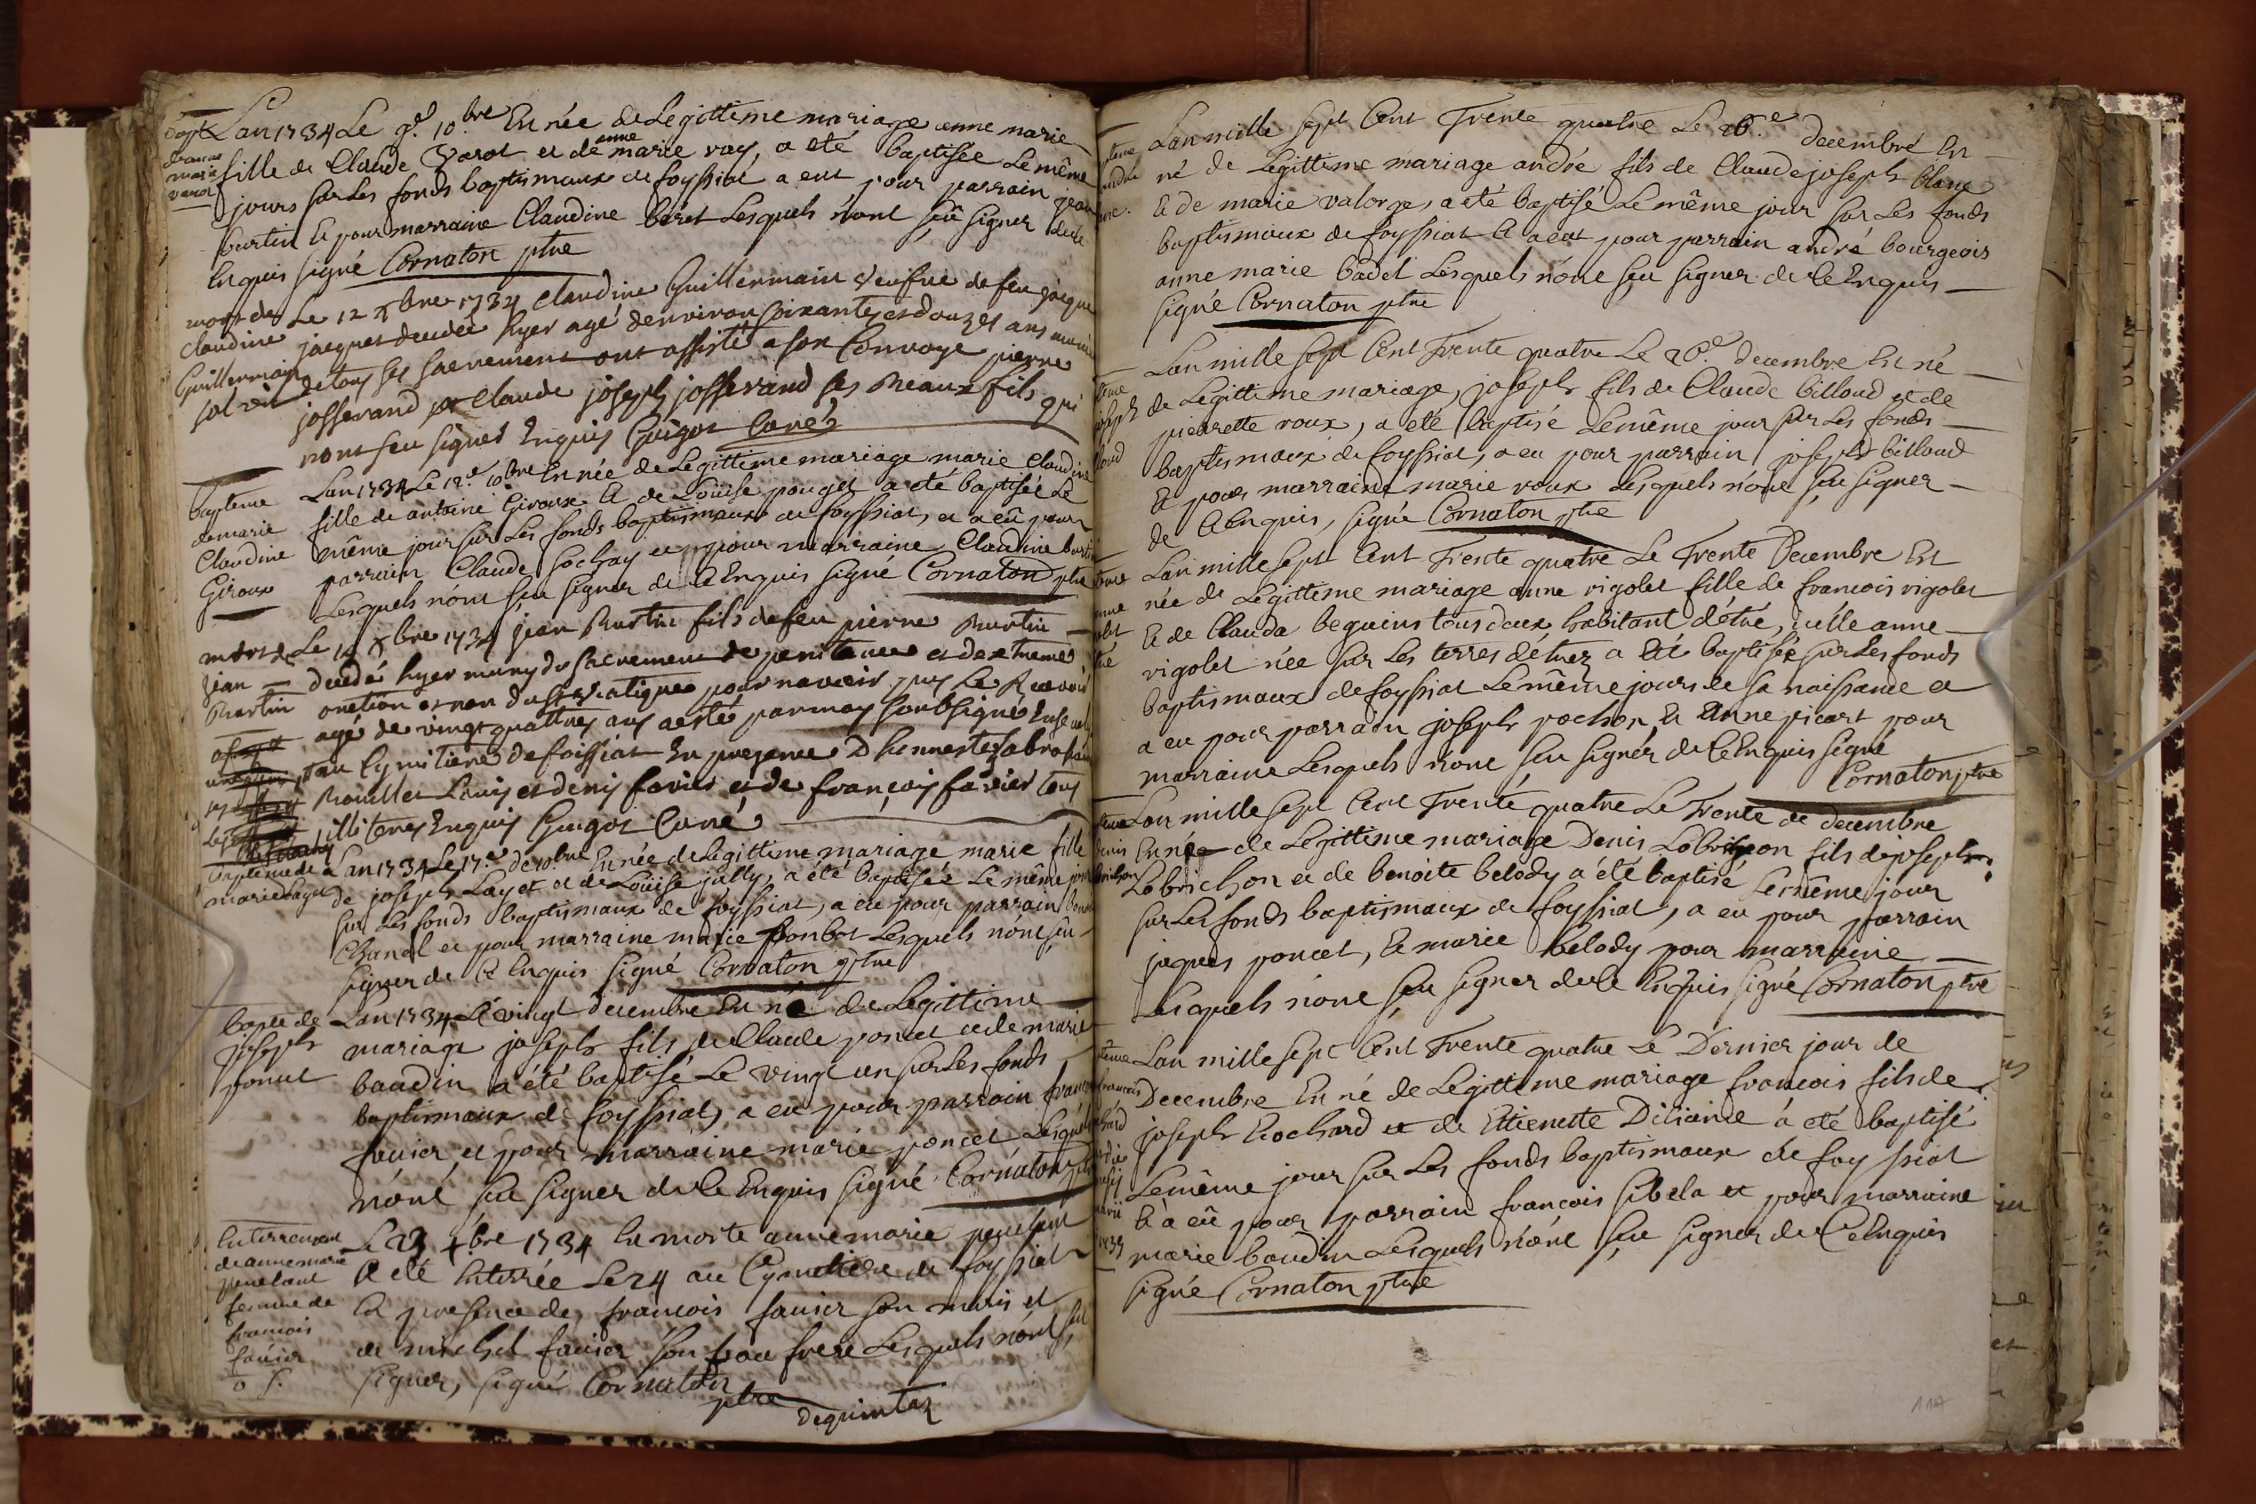 Bapt
danne
marie
varot
Lan 1734 Le 9e 10bre En née de Legittime mariage anne marie
fille de Claude Varot et de anne marie ray, a eté baptisée Le même
jours sur Les fonds baptismaux de foyssiat a eut pour parrain jean
burtin Et pour marraine Claudine beret Lesquels n'ont sçu signer de ce
Enquis signé Cornaton ptre
mort de
Claudine
Guillermain
Le 12 xbre 1734 Claudine Guillermain Veufve de feu jacque
jacquet decedeé hyer agé denviron soixantes et douzes ans
de tous ses sacrement ont assisté a son Convoye pierre
josserand et Claude joseph josserand ses Beaux fils qui
nont seu signer Enquis Guigot Curé
bapteme
de marie
Claudine
Giroux
Lan 1734 Le 12e 10bre En née de Legittime mariage marie Claudine
fille de antoine Giroux Et de Loüise pouget a eté baptisée Le
même jour sur Les fonds baptismaux de foyssiat, et a eû pour
parrain Claude sochay et pour marraine Claudine burtin
Lesquels nont sçu signer de ce Enquis signé Cornaton ptre
mort de
jean
Burtin
Le 14 xbre 1734 jean Burtin fils de feu pierre Burtin
decedé hyer muny du sacrement de penitence et dextreme
onction et non du st viatique pour navoir puy Le Recevoir
agé de vingt quattres ans a esté par moy soubsigné
au Cymitiere de foissiat En presence D honnestes abraham
Rouiller Louis et denis favier et de françois favier tous
illiteres Enquis Guigot Curé
bapteme de
marie Layet
Lan 1734 Le 17e de 10bre En née de Legittime mariage marie fille
de joseph Layet et de Loüise jally, a été baptisée Le même jour
sur Les fonds baptismaux de foyssiat, a eu pour parrain
Chanel et pour marraine marie bonbot Lesquels nont sçu
signer de Ce Enquis signé Cornaton ptre
bapte de
joseph
poncet
Lan 1734 Le vingt decembre En né de Legittime
mariage joseph fils de Claude poncet et de marie
baudin a été baptisé Le vingt un sur Les fonds
baptismaux de foyssiat, a eu pour parrain
fauier et pour marraine marie poncet Lesquels
n'ont sçu signer de Ce Enquis signé Cornaton ptre
Enterrement
de anne marie
penetant
femme de
francois
fauier
Le 23 xbre 1734 En morte anne marie
a eté Enterrée Le 24 au Cymetiere de foyssiat
En presence de francois fauier son maris et
de michel fauier son frere Lesquels n'ont sçu
signer, signé Cornaton
ptre dequintaz
Lan mille sept Cent Trente quatre Le 26e decembre En
né de Legittime mariage andré fils de Claude joseph blanc
Et de marie valorge, a été baptisé Le même jour sur Les fonds
baptismaux de foyssiat Et a eut pour parrain andré bourgeois
anne marie badel Lesquels n'ont sçu signer de Ce Enquis
signé Cornaton ptre
Lan mille sept Cent Trente quatre Le 26e decembre En né
de Legittime mariage, joseph fils de Claude billoud et de
pierrette roux, a été baptisé Le même jour sur Les fonds
baptismaux de foyssiat, a eu pour parrain joseph billoud
Et pour marraine marie roux Lesquels n'ont sçu signer
de Ce Enquis, signé Cornaton ptre
Lan mille sept Cent Trente quatre Le Trente Decembre Est
née de Légittime mariage anne rigolet fille de francois rigolet
Et de Clauda beguins tous deux habitant d'étré, icelle anne
rigolet née sur Les terres détrez a été baptisée sur Les fonds
baptismaux de foyssiat Le même jours de sa naissance et
a eu pour parrain joseph pochon Et Anne picart pour
marraine Lesquels n'ont sçu signér de Ce Enquis signé
Cornaton ptre
Denis
Lobrichon
Lan mille sept Cent Trente quatre Le Trente de decembre
En née de Legittime mariage Denis Lobrichon fils de joseph
Lobrichon et de benoite belody a été baptisé Le même jour
sur Les fonds baptismaux de foyssiat, a eu pour parrain
jaques poncet, Et marie belody pour marraine
Lesquels n'ont sçu signer de Ce Enquis signé Cornaton ptre
Lan mille sept Cent Trente quatre Le Dernier jour de
Decembre En né de Legittime mariage francois fils de
joseph Cochard et de Ettienette Diliance á eté baptisé
Le même jour sur Les fonds baptismaux de foyssiat
Et a eû pour parrain francois sibela et pour marraine
marie baudin Lesquels n'ont sçu signer de Ce Enquis
signé Cornaton ptre